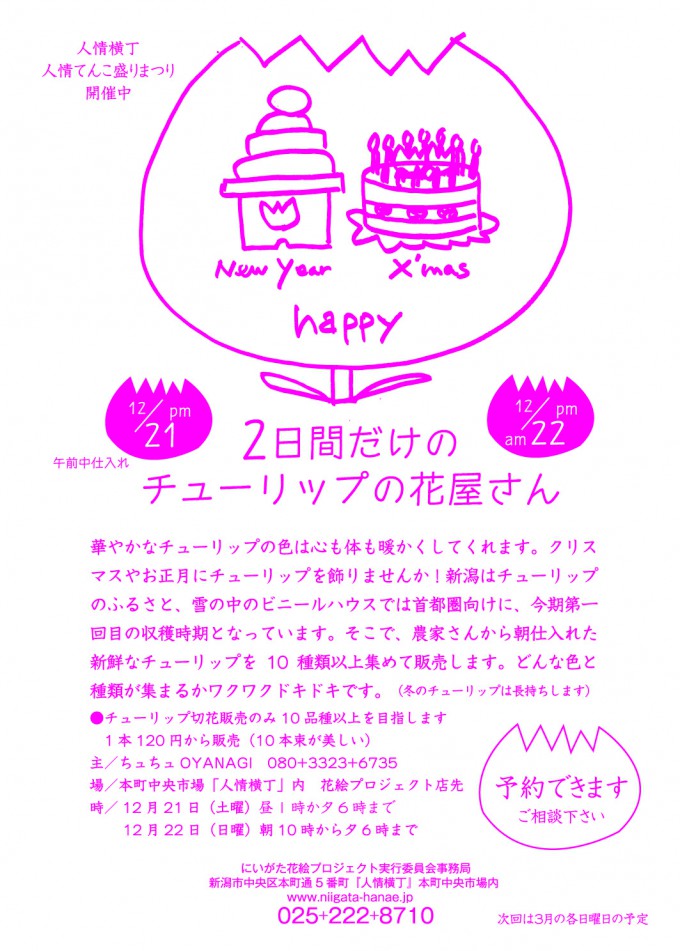 人情横丁
人情てんこ盛りまつり
開催中
New Year
X'mas
happy
12/21 pm
午前中仕入れ
12/22 am pm
2日間だけの
チューリップの花屋さん
華やかなチューリップの色は心も体も暖かくしてくれます。クリス
マスやお正月にチューリップを飾りませんか！新潟はチューリップ
のふるさと、雪の中のビニールハウスでは首都圏向けに、今期第一
回目の収穫時期となっています。そこで、農家さんから朝仕入れた
新鮮なチューリップを 10 種類以上集めて販売します。どんな色と
種類が集まるかワクワクドキドキです。（冬のチューリップは長持ちします）
●チューリップ切花販売のみ 10 品種以上を目指します
1本120円から販売（10本束が美しい）
主／ちゅちゅOYANAGI 080+3323+6735
場／本町中央市場「人情横丁」内 花絵プロジェクト店先
時／12月21日（土曜）昼1時か夕6時まで
12月22日（日曜）朝10時から夕6時まで
予約できます
ご相談下さい
にいがた花絵プロジェクト実行委員会事務局
新潟市中央区本町通5番町『人情横丁』本町中央市場内
www.niigata-hanae.jp
025+222+8710
次回は3月の各日曜日の予定